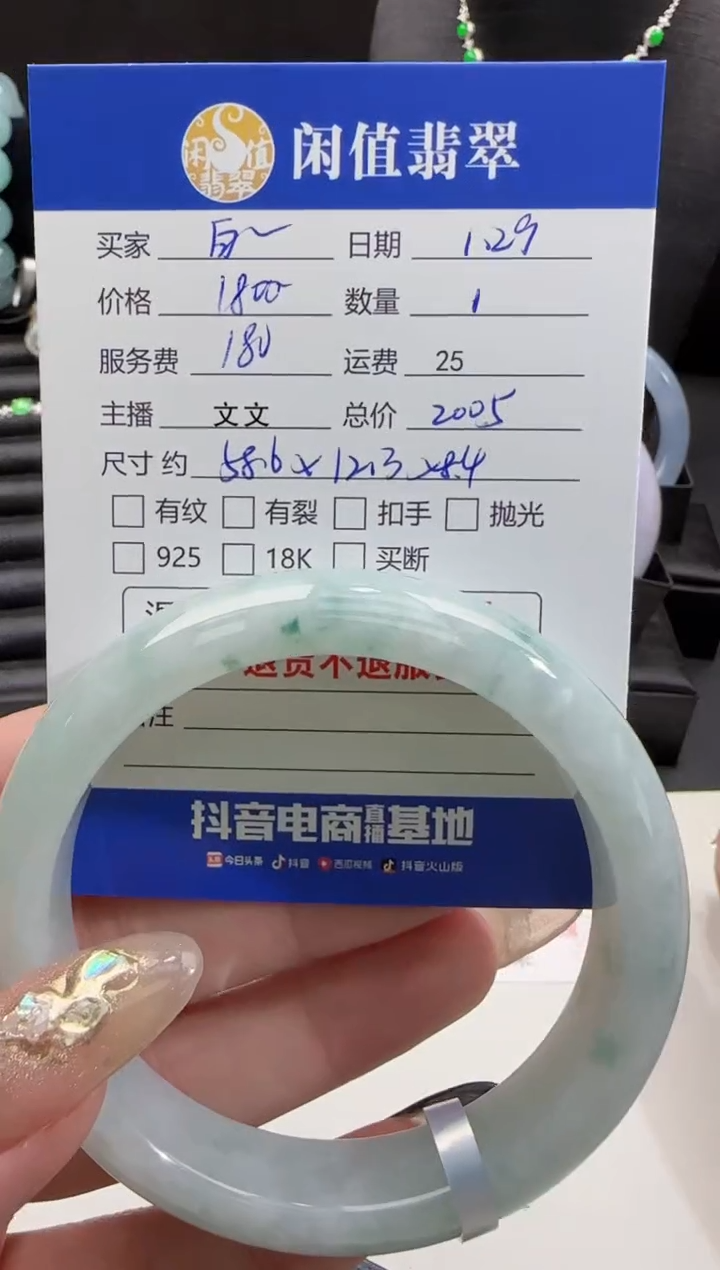 闲值翡翠
闲值翡翠
买家 日期 1.29
价格 1800 数量 1
服务费 180 运费 25
主播 文文 总价 2005
尺寸 约 58.6x12.3x8.4
有纹 有裂 扣手 抛光
925 18K 买断
退货不退服
注
抖音电商直播基地
今日头条 抖音 西瓜视频 抖音火山版